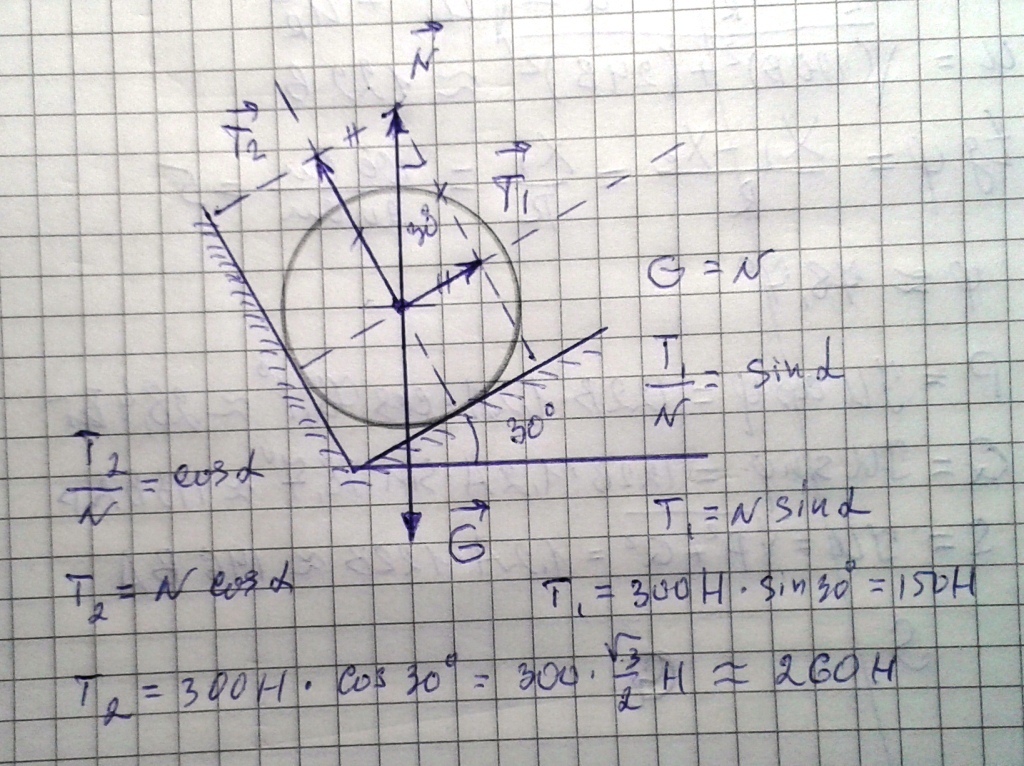 N⃗
T⃗₂
T⃗₁
30°
G = N
T₁/N = sin α
30°
T₂/N = cos α
G⃗
T₁ = N sin α
T₂ = N cos α
T₁ = 300H · sin 30° = 150H
T₂ = 300H · cos 30° = 300 · √3/2 H ≈ 260H